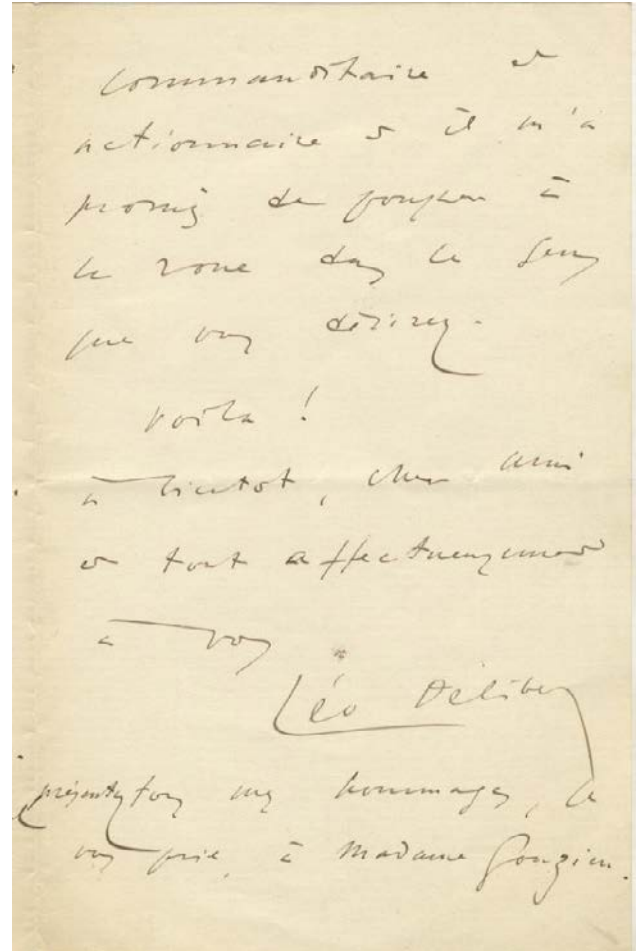 commanditaire et
actionnaire et il m'a
promis de pousser à
la roue dans le sens
que vous désirez.
Voilà !
à bientôt, cher ami
et tout affectueusement
à vous
Léo Delibes
présentez tous mes hommages, je
vous prie, à Madame Gouzien.